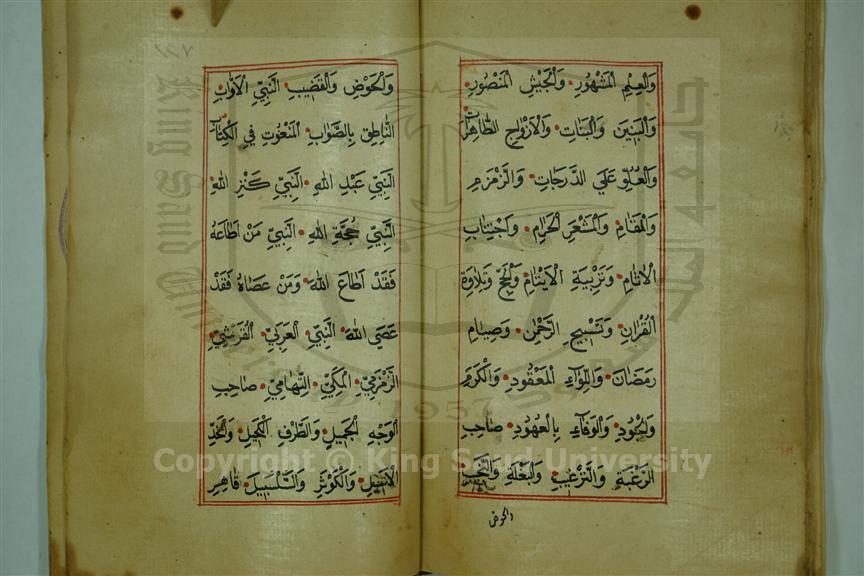 وَالْعِلْمِ الْمَشْهُورِ وَالْجَيْشِ الْمَنْصُورِ
وَالْبَنِينَ وَالْبَنَاتِ وَالْأَزْوَاجِ الطَّاهِرَاتِ
وَالْعُلُوِّ عَلَى الدَّرَجَاتِ وَالزَّمْزَمِ
وَالْمَقَامِ وَالْمَشْعَرِ الْحَرَامِ وَاجْتِنَابِ
الْآثَامِ وَتَرْبِيَةِ الْأَيْتَامِ وَالْحَجِّ وَتِلَاوَةِ
الْقُرْآنِ وَتَسْبِيحِ الرَّحْمٰنِ وَصِيَامِ
رَمَضَانَ وَاللِّوَاءِ الْمَعْقُودِ وَالْكَرَمِ
وَالْجُودِ وَالْوَفَاءِ بِالْعُهُودِ صَاحِبِ
الرَّغْبَةِ وَالتَّرْغِيبِ وَالْبَغْلَةِ وَالنَّجِيبِ
والحوض
وَالْحَوْضِ وَالْقَضِيبِ النَّبِيِّ الْأَوَّابِ
النَّاطِقِ بِالصَّوَابِ الْمَنْعُوتِ فِي الْكِتَابِ
النَّبِيِّ عَبْدِ اللهِ النَّبِيِّ كَنْزِ اللهِ
النَّبِيِّ حُجَّةِ اللهِ النَّبِيِّ مَنْ أَطَاعَهُ
فَقَدْ أَطَاعَ اللهَ وَمَنْ عَصَاهُ فَقَدْ
عَصَى اللهَ النَّبِيِّ الْعَرَبِيِّ الْقُرَشِيِّ
الزَّمْزَمِيِّ الْمَكِّيِّ التِّهَامِيِّ صَاحِبِ
الْوَجْهِ الْجَمِيلِ وَالطَّرْفِ الْكَحِيلِ وَالْخَدِّ
الْأَسِيلِ وَالْكَوْثَرِ وَالسَّلْسَبِيلِ قَاهِرِ
King Saud University
جامعة الملك
1957
Copyright © King Saud University